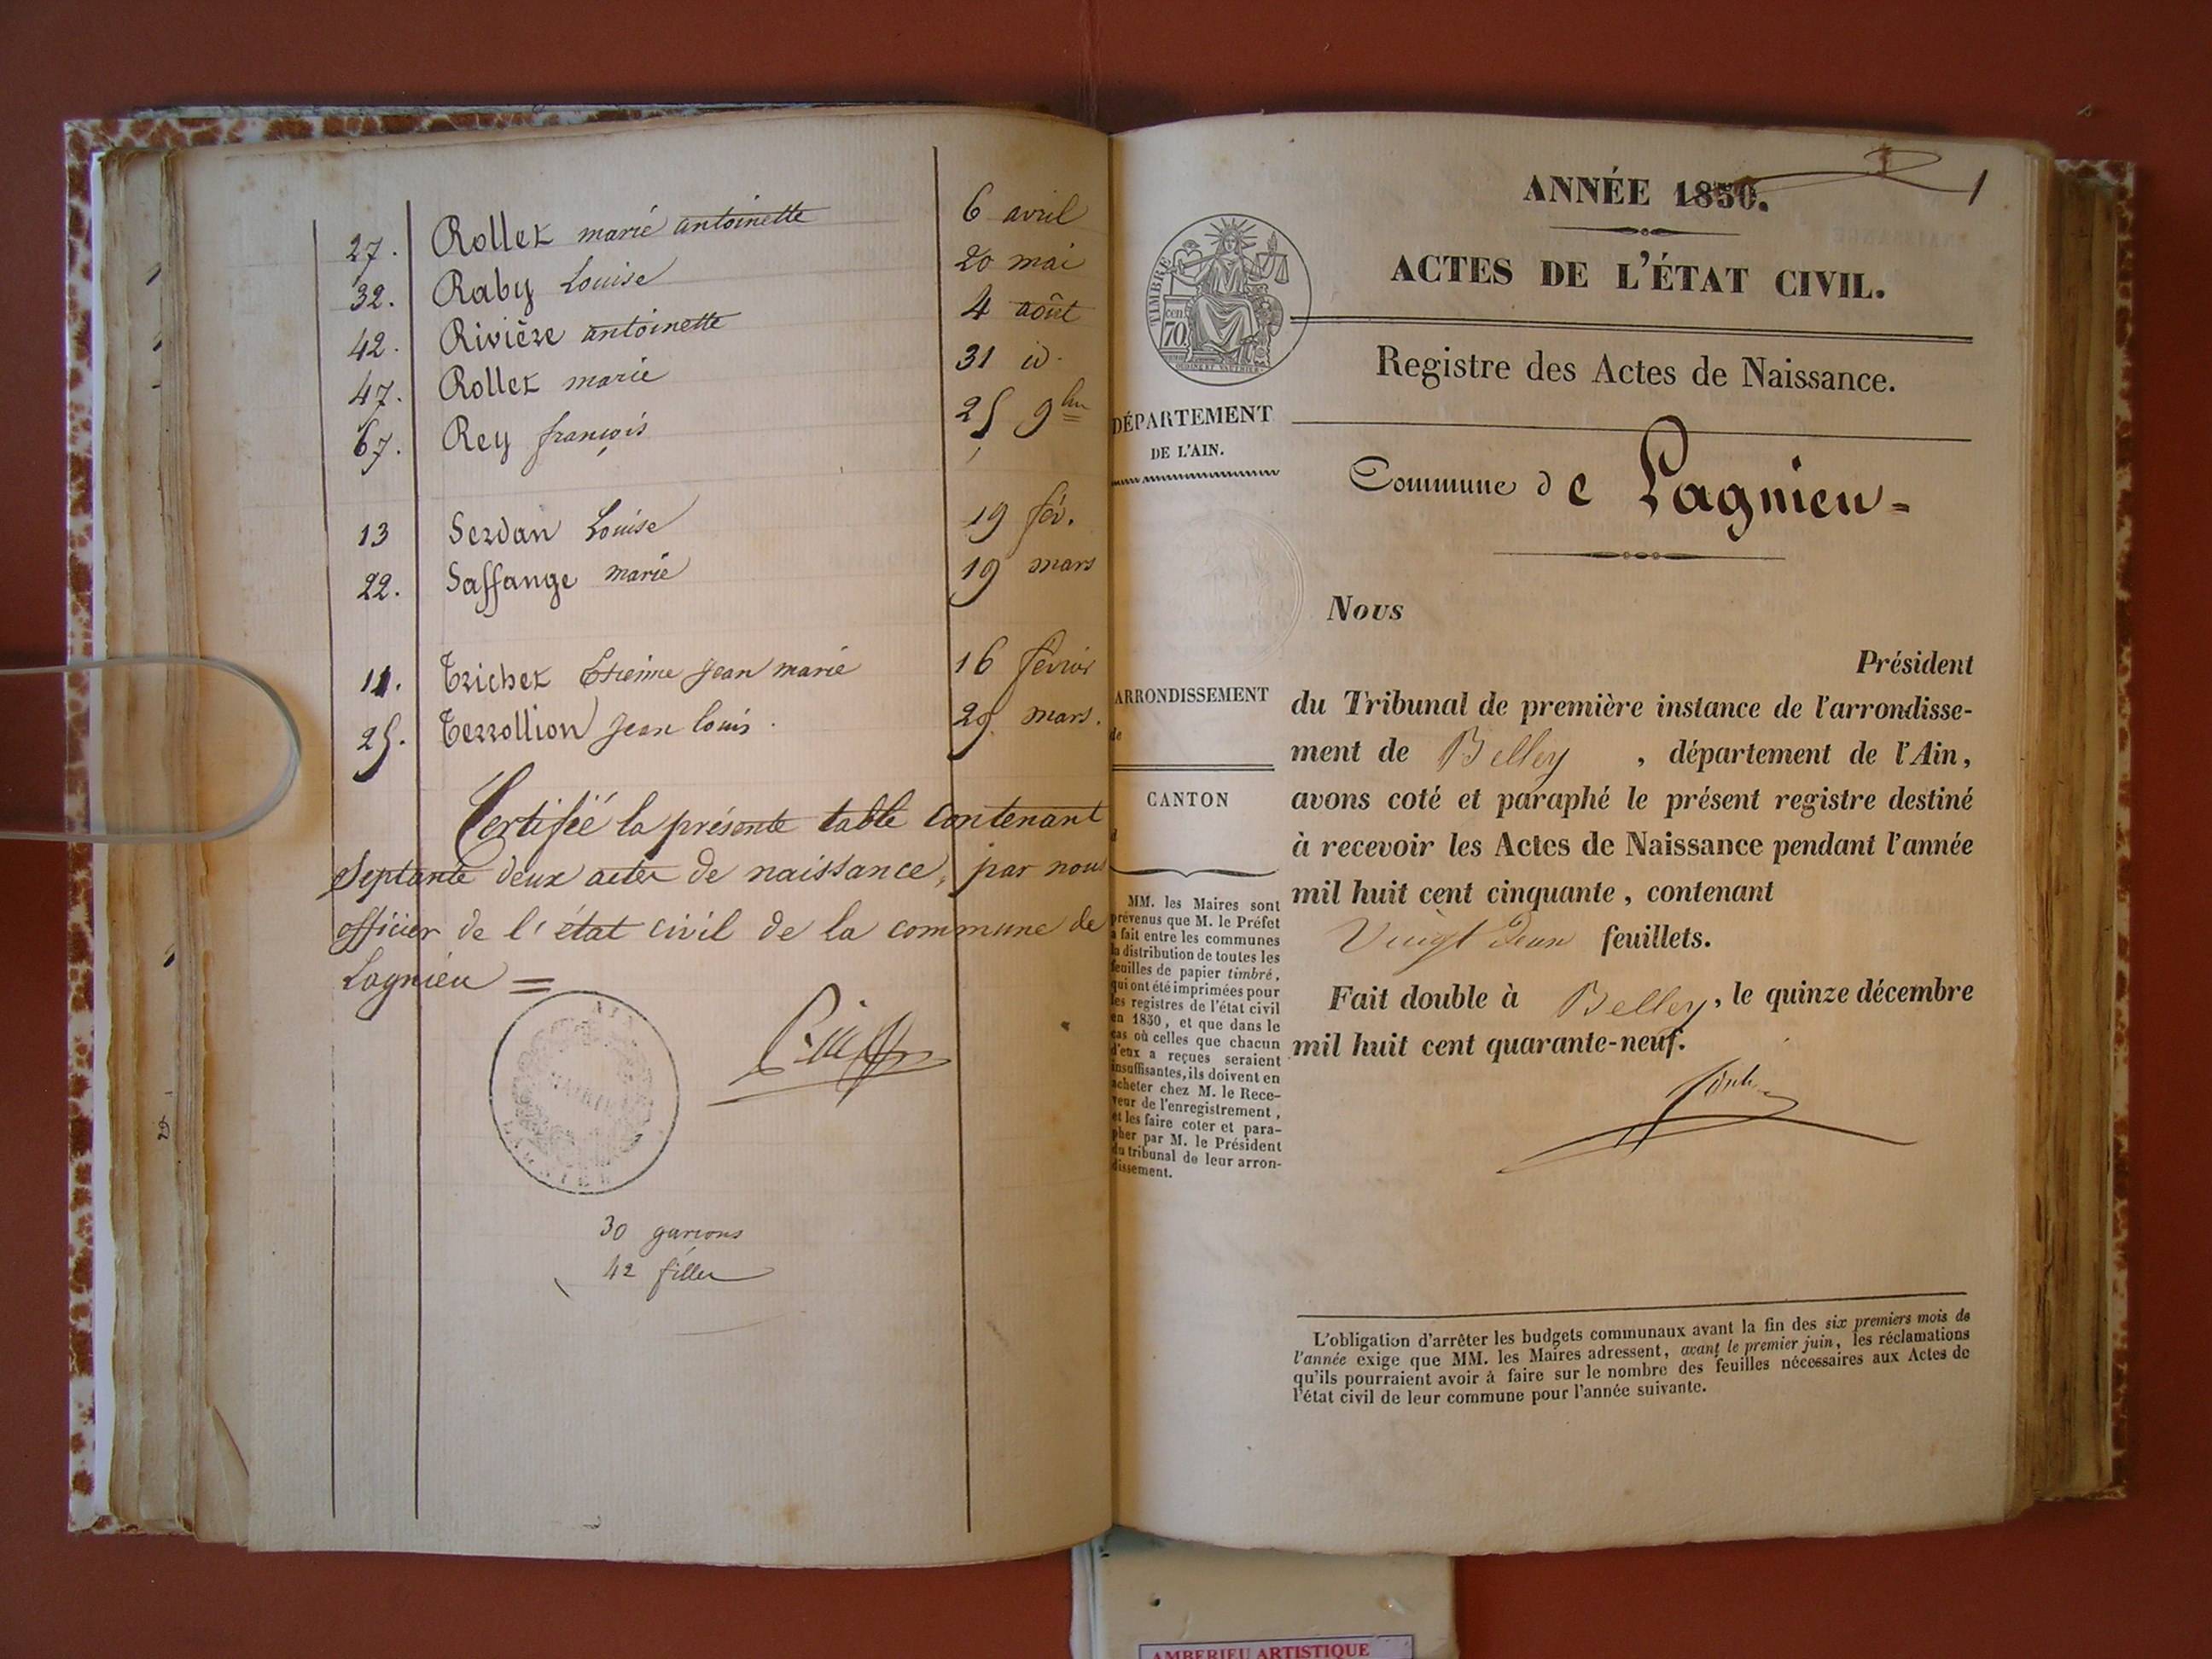 27. Rollet marie antoinette 6 avril
32. Raby Louise 20 mai
42. Rivière antoinette 4 août
47. Rollet marie 31 id.
67. Rey françois 25 9bre
13 Serdan Louise 19 fév.
22. Saffange marie 19 mars
11. Trichet Etienne Jean marie 16 février
25. Terrollion Jean louis. 29. mars.
Certifié la présente table contenant
Septante deux actes de naissance, par nous
officier de l'état civil de la commune de
Lagnieu =
AIN
MAIRIE
30 garçons
42 filles
ANNÉE 1850.
1
ACTES DE L'ÉTAT CIVIL.
TIMBRE
cen. 70
Registre des Actes de Naissance.
DÉPARTEMENT
DE L'AIN.
Commune de Lagnieu =
Nous
Président
ARRONDISSEMENT
de
du Tribunal de première instance de l'arrondisse-
ment de Belley , département de l'Ain,
CANTON
d
avons coté et paraphé le présent registre destiné
à recevoir les Actes de Naissance pendant l'année
mil huit cent cinquante, contenant
Vingt Deux feuillets.
Fait double à Belley, le quinze décembre
mil huit cent quarante-neuf.
MM. les Maires sont
prévenus que M. le Préfet
a fait entre les communes
la distribution de toutes les
feuilles de papier timbré,
qui ont été imprimées pour
les registres de l'état civil
en 1850, et que dans le
cas où celles que chacun
d'eux a reçues seraient
insuffisantes, ils doivent en
acheter chez M. le Rece-
veur de l'enregistrement,
et les faire coter et para-
pher par M. le Président
du tribunal de leur arron-
dissement.
L'obligation d'arrêter les budgets communaux avant la fin des six premiers mois de
l'année exige que MM. les Maires adressent, avant le premier juin, les réclamations
qu'ils pourraient avoir à faire sur le nombre des feuilles nécessaires aux Actes de
l'état civil de leur commune pour l'année suivante.
AMBERIEU ARTISTIQUE